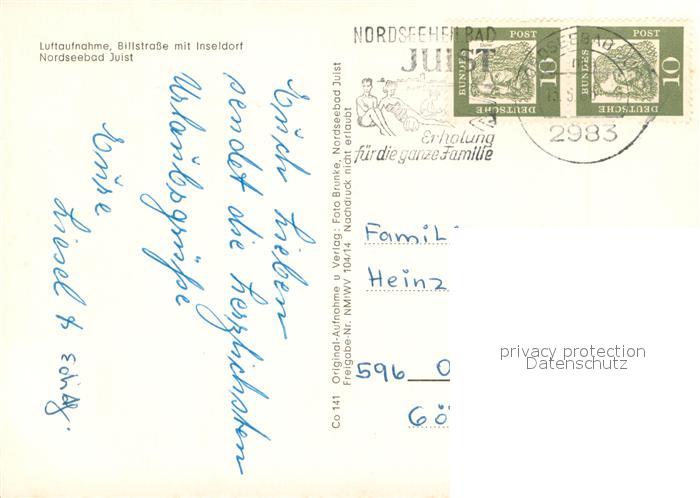 Luftaufnahme, Billstraße mit Inseldorf
Nordseebad Juist
Euch Lieben
sendet die herzlichsten
Urlaubsgrüße
Eure
Liesel &
Co 141 Original-Aufnahme u Verlag: Foto Brunke, Nordseebad Juist
Freigabe-Nr. NMIWV 104/14 Nachdruck nicht erlaubt
NORDSEEHEILBAD
JUIST
Erholung
für die ganze Familie
DEUTSCHE BUNDES POST 10
DEUTSCHE BUNDES POST 10
NORDSEEBAD
2983
Famil
Heinz
596 O
Gö
privacy protection
Datenschutz